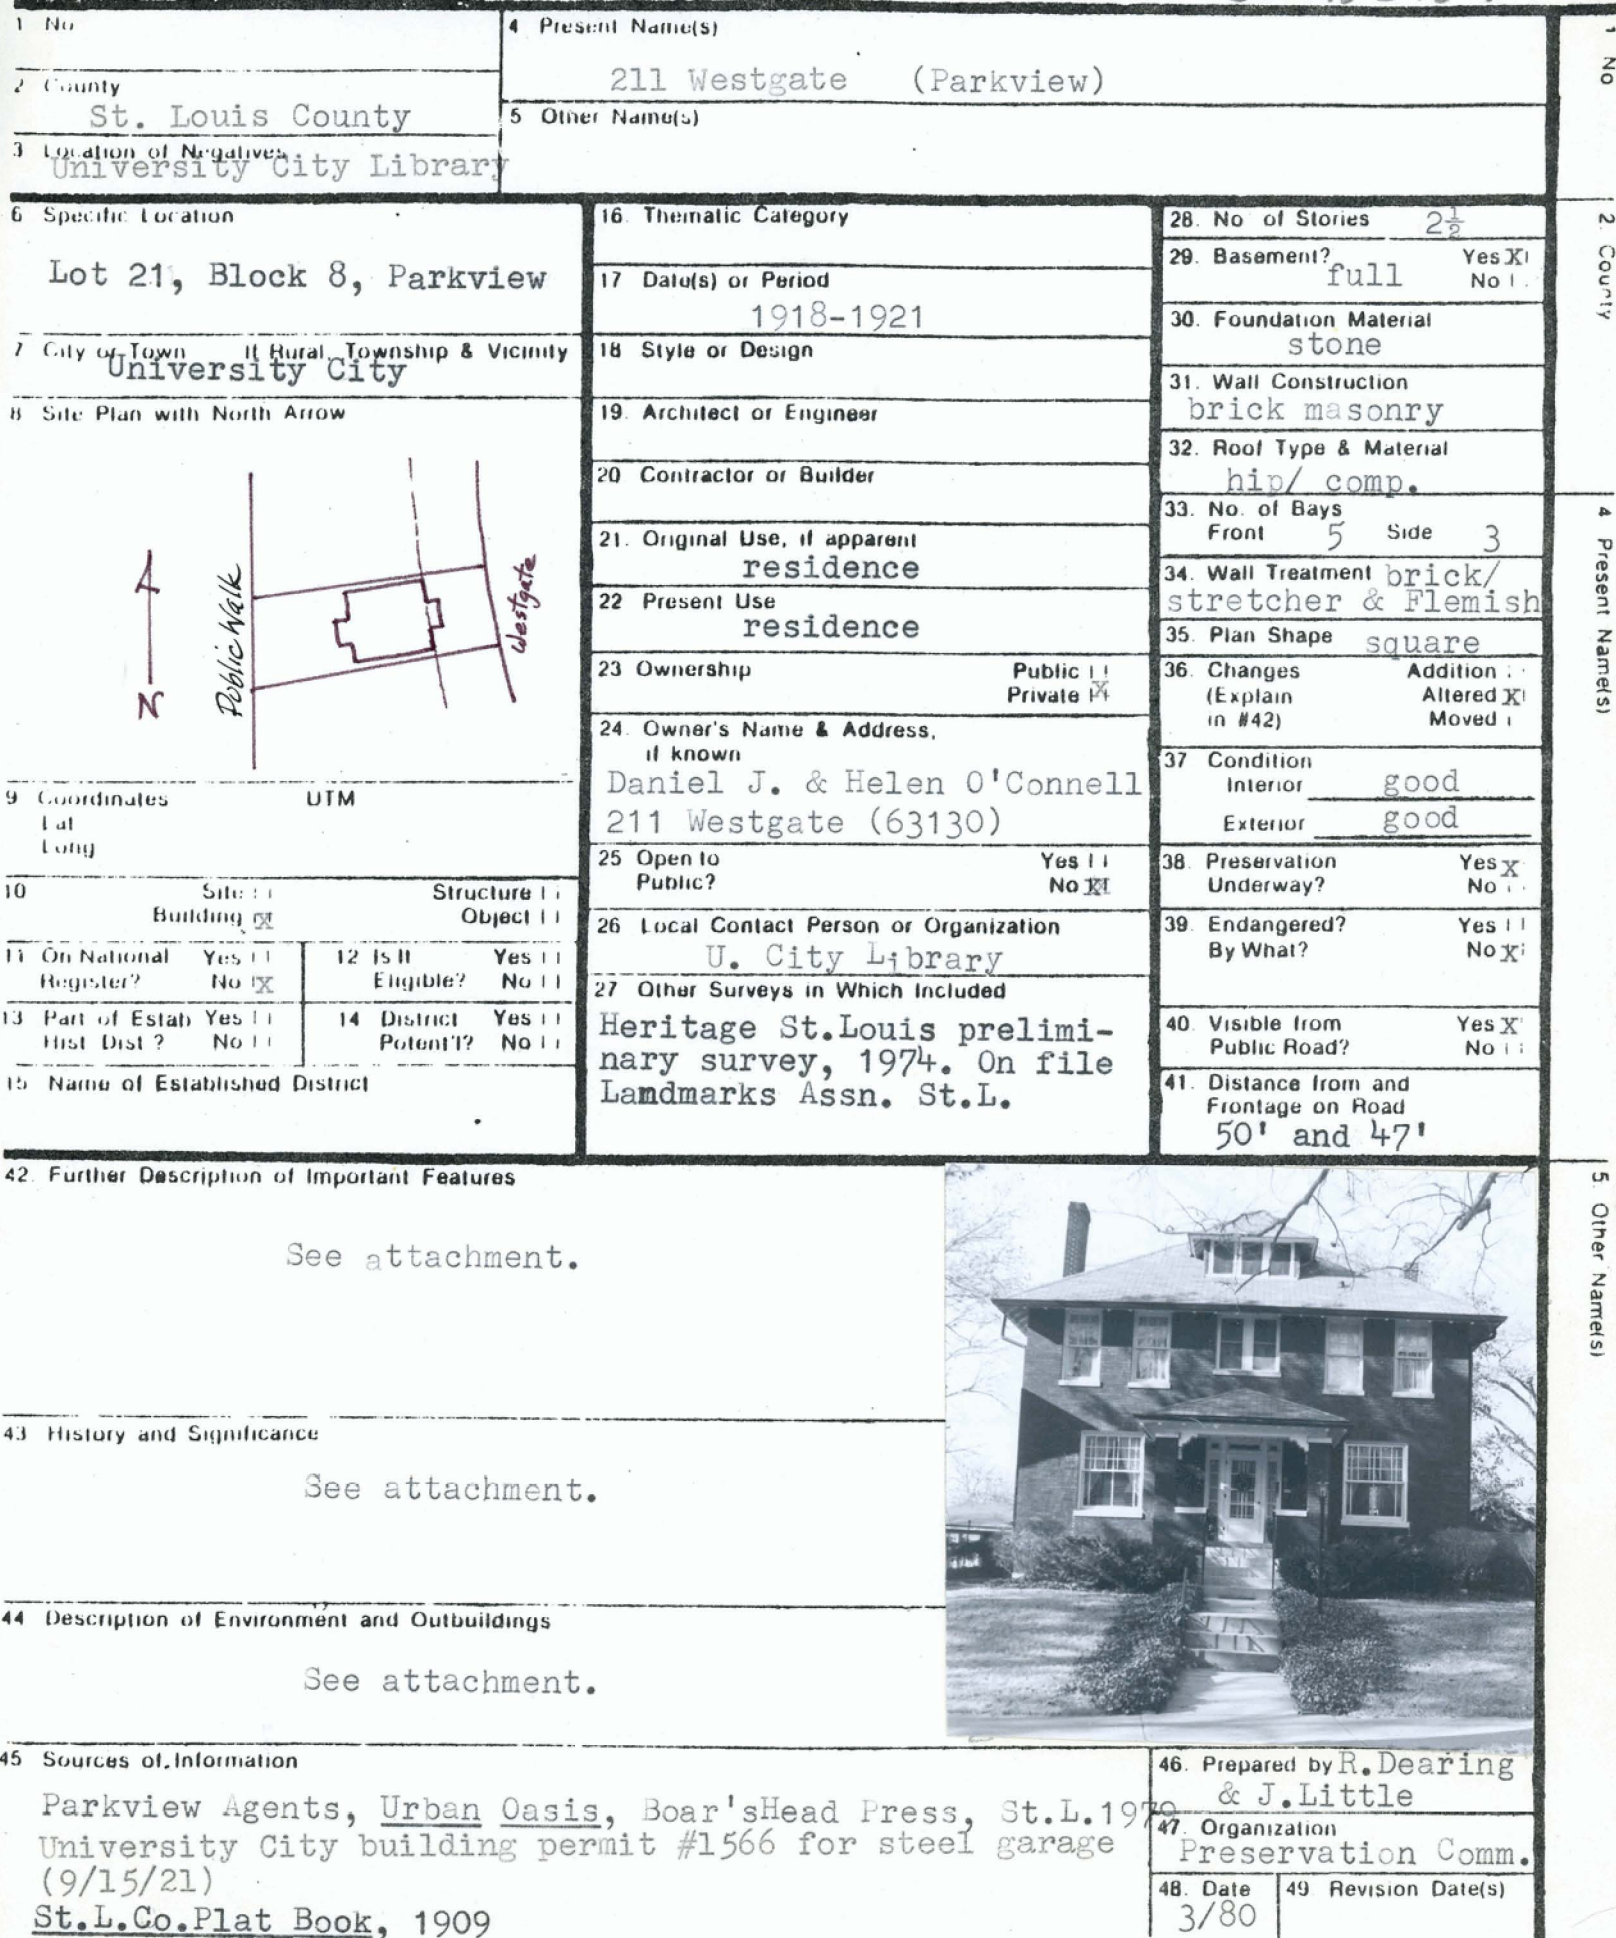 1 No
4 Present Name(s)
211 Westgate (Parkview)
2 County
St. Louis County
5 Other Name(s)
3 Location of Negatives
University City Library
6 Specific Location
Lot 21, Block 8, Parkview
7 City or Town If Rural, Township & Vicinity
University City
8 Site Plan with North Arrow
Public Walk
Westgate
N
9 Coordinates UTM
Lat
Long
10 Site Structure
Building X Object
11 On National Register? Yes No X
12 Is It Eligible? Yes No
13 Part of Estab Hist Dist? Yes No
14 District Potent'l? Yes No
15 Name of Established District
16. Thematic Category
17 Date(s) or Period
1918-1921
18 Style or Design
19. Architect or Engineer
20 Contractor or Builder
21. Original Use, if apparent
residence
22 Present Use
residence
23 Ownership Public
Private X
24. Owner's Name & Address,
if known
Daniel J. & Helen O'Connell
211 Westgate (63130)
25 Open to Yes
Public? No X
26 Local Contact Person or Organization
U. City Library
27 Other Surveys in Which Included
Heritage St.Louis prelimi-
nary survey, 1974. On file
Landmarks Assn. St.L.
28. No of Stories 2½
29. Basement? Yes X
full No
30. Foundation Material
stone
31. Wall Construction
brick masonry
32. Roof Type & Material
hip/ comp.
33. No. of Bays
Front 5 Side 3
34. Wall Treatment brick/
stretcher & Flemish
35. Plan Shape square
36. Changes Addition
(Explain Altered X
in #42) Moved
37 Condition
Interior good
Exterior good
38. Preservation Yes X
Underway? No
39. Endangered? Yes
By What? No X
40. Visible from Yes X
Public Road? No
41. Distance from and
Frontage on Road
50' and 47'
42. Further Description of Important Features
See attachment.
43 History and Significance
See attachment.
44 Description of Environment and Outbuildings
See attachment.
45 Sources of Information
Parkview Agents, Urban Oasis, Boar'sHead Press, St.L.1979
University City building permit #1566 for steel garage
(9/15/21)
St.L.Co.Plat Book, 1909
46. Prepared by R.Dearing
& J.Little
47. Organization
Preservation Comm.
48. Date
3/80
49 Revision Date(s)
1 No
2. County
4 Present Name(s)
5. Other Name(s)